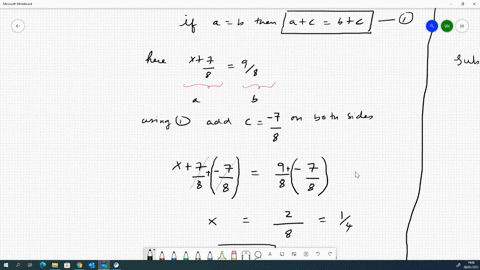 Microsoft Whiteboard
if a = b then a + c = b + c — ①
here x + 7/8 = 9/8
a b
using ① add c = -7/8 on both sides
Sub
x + 7/8 + (-7/8) = 9/8 + (-7/8)
x = 2/8 = 1/4